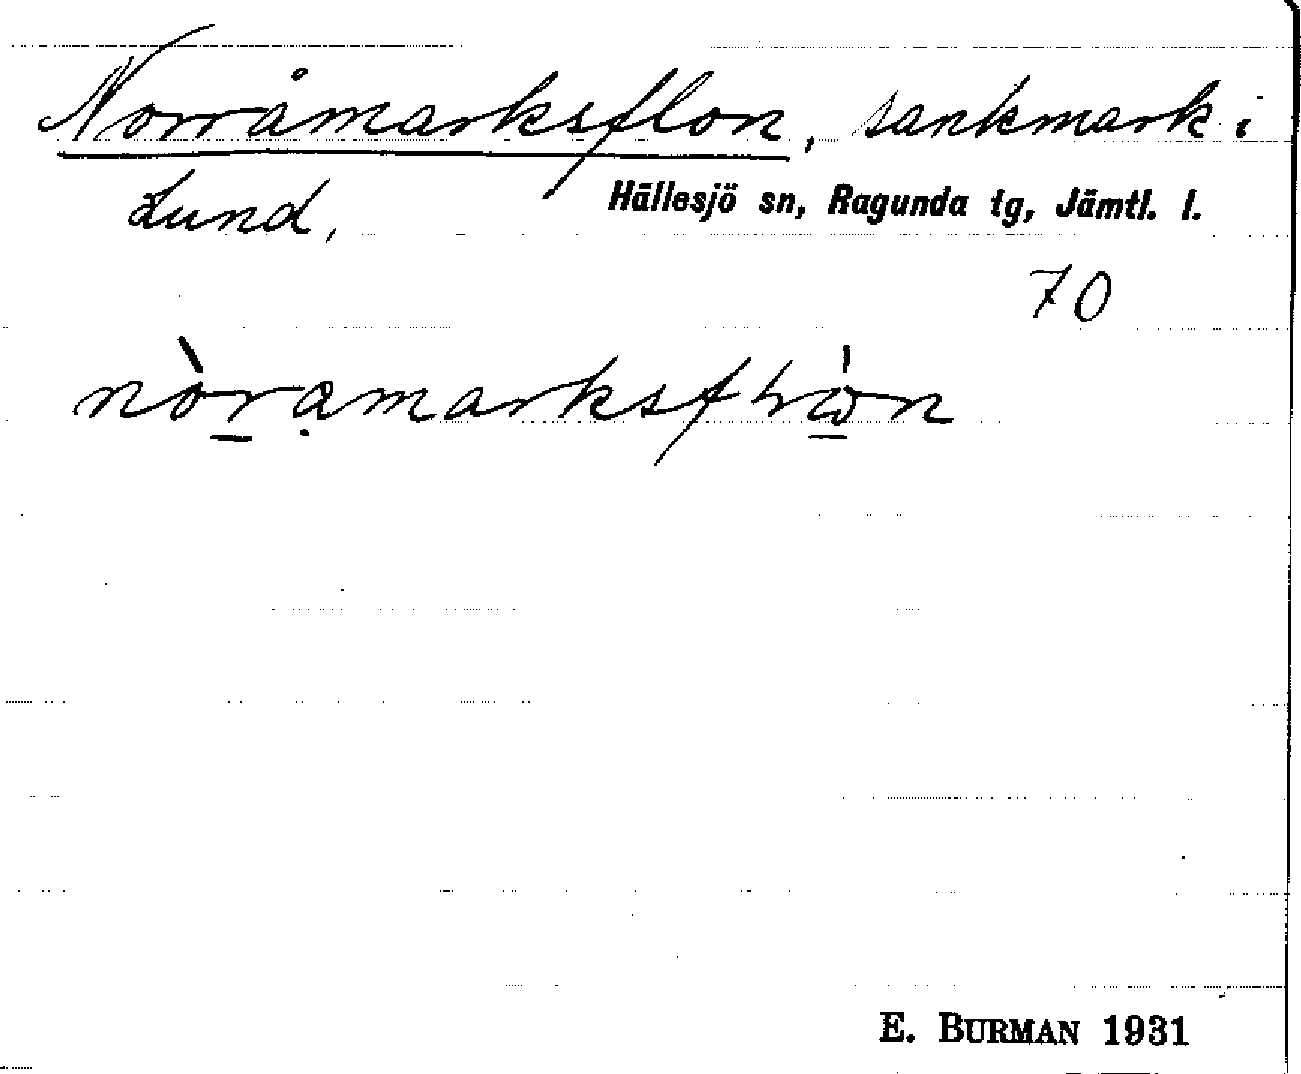 Norråmarksflon, sankmark i
Lund, Hällesjö sn, Ragunda tg, Jämtl. l.
70
E. BURMAN 1931